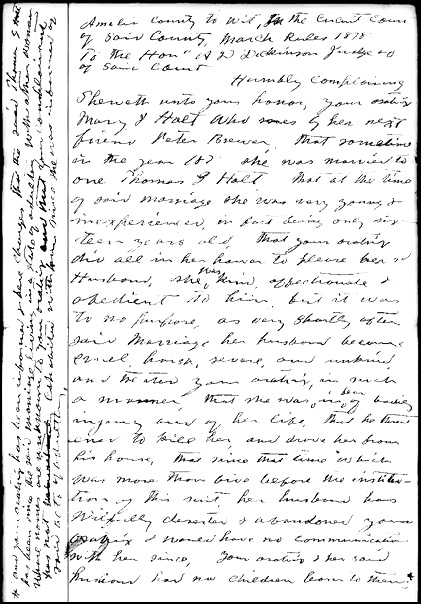 Amelia County to Wit, In the Circuit Court
of Said County, March Rules 1878
To the Hon' A D Dickinson Judge
of Said Court
Humbly Complaining
Sheweth unto your honor, your oratrix
Mary J Holt who sues by her next
friend Peter Brewer, that sometime
in the year 187 she was married to
one Thomas G Holt, that at the time
of said marriage she was very young &
inexperienced, in fact being only six-
teen years old, that your oratrix
did all in her power to please her sd
Husband, she was kind, affectionate &
obedient to him, but it was
to no purpose, as very shortly after
said Marriage her husband became
cruel harsh, severe, and unkind
and treated your oratrix in such
a manner, that she was, in fear of bodily
injury and of her life, that he threat-
ened to kill her, and drove her from
his house, that since that time which
was more than five before the institu-
tion of this suit her husband has
Wilfully deserted & abandoned your
oratrix & would have no communication
with her since, Your oratrix & her said
husband had no children born to them
# and your oratrix has been informed & here charges that the said Thomas G Holt
has been since said marriage living in a state of adultery with other women
whose names are unknown to your oratrix and that your complainant
has not cohabited with him since she was informed of
said acts of adultery,